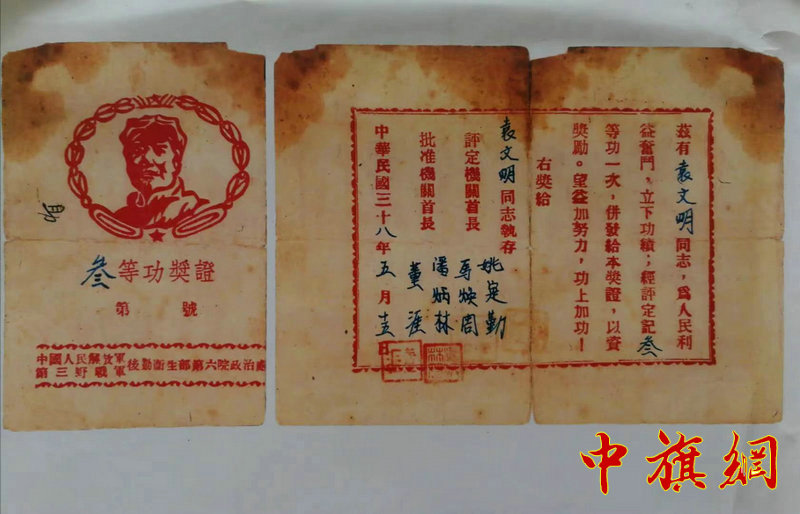 叁等功獎證
第 號
中國人民解放軍
第三野戰軍
後勤衛生部第六院政治處
茲有袁文明同志，為人民利
益奮鬥，立下功績；經評定記叁
等功一次，併發給本獎證，以資
獎勵。望益加努力，功上加功！
右獎給
袁文明同志執存
評定機關首長
姚定勤
批准機關首長
潘炳林
董涯
中華民國三十八年五月
中旗網